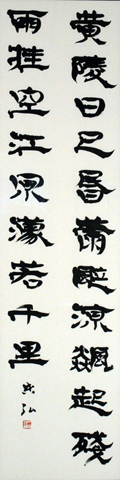 黄陵日已昏蕭颯涼飆起殘
雨挂空江風濤若千里
弘